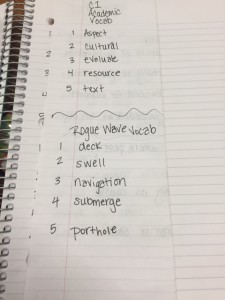 C1
Academic
Vocab
1 Aspect
2 cultural
3 evaluate
4 resource
5 text
Rogue Wave Vocab
1 deck
2 swell
3 navigation
4 submerge
5 porthole